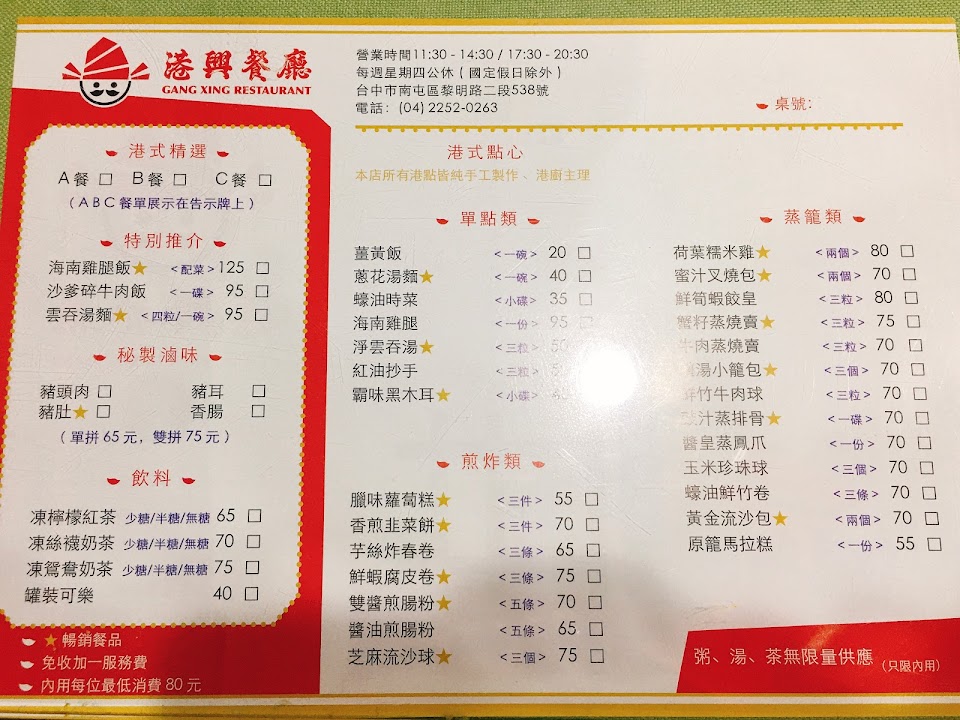 港興餐廳
GANG XING RESTAURANT
營業時間11:30 - 14:30 / 17:30 - 20:30
每週星期四公休（國定假日除外）
台中市南屯區黎明路二段538號
電話：(04) 2252-0263
桌號：
港式精選
A餐 □ B餐 □ C餐 □
（ABC餐單展示在告示牌上）
特別推介
海南雞腿飯★ <配菜> 125 □
沙爹碎牛肉飯 <一碟> 95 □
雲吞湯麵★ <四粒/一碗> 95 □
秘製滷味
豬頭肉 □ 豬耳 □
豬肚★ □ 香腸 □
（單拼65元，雙拼75元）
飲料
凍檸檬紅茶 少糖/半糖/無糖 65 □
凍絲襪奶茶 少糖/半糖/無糖 70 □
凍鴛鴦奶茶 少糖/半糖/無糖 75 □
罐裝可樂 40 □
★暢銷餐品
免收加一服務費
內用每位最低消費80元
港式點心
本店所有港點皆純手工製作、港廚主理
單點類
薑黃飯 <一碗> 20 □
蔥花湯麵★ <一碗> 40 □
蠔油時菜 <小碟> 35 □
海南雞腿 <一份> 95 □
淨雲吞湯★ <三粒> 50
紅油抄手 <三粒>
霸味黑木耳★ <小碟>
煎炸類
臘味蘿蔔糕★ <三件> 55 □
香煎韭菜餅★ <三件> 70 □
芋絲炸春卷 <三條> 65 □
鮮蝦腐皮卷★ <三條> 75 □
雙醬煎腸粉★ <五條> 70 □
醬油煎腸粉 <五條> 65 □
芝麻流沙球★ <三個> 75 □
蒸籠類
荷葉糯米雞★ <兩個> 80 □
蜜汁叉燒包★ <兩個> 70 □
鮮筍蝦餃皇 <三粒> 80 □
蟹籽蒸燒賣★ <三粒> 75 □
牛肉蒸燒賣 <三粒> 70 □
湯小籠包★ <三個> 70 □
鮮竹牛肉球 <三粒> 70 □
汁蒸排骨★ <一碟> 70 □
醬皇蒸鳳爪 <一份> 70 □
玉米珍珠球 <三個> 70 □
蠔油鮮竹卷 <三條> 70 □
黃金流沙包★ <兩個> 70 □
原籠馬拉糕 <一份> 55 □
粥、湯、茶無限量供應（只限內用）